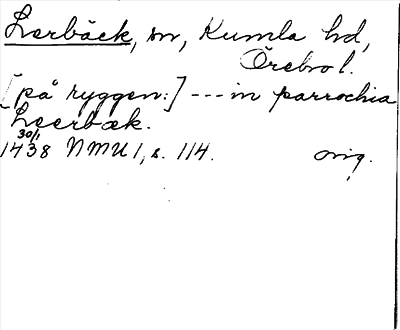 Lerbäck, sn, Kumla hd,
Örebro l.
[på ryggen:] --- in parrochia
Leerbæk.
30/1
1438 NMU 1, s. 114. orig.